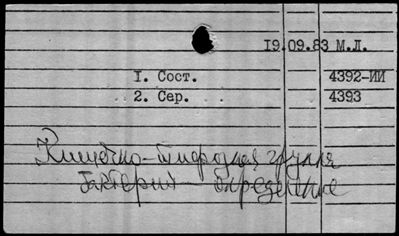 19.09.83 М.Л.
1. Сост. 4392-ИИ
2. Сер. 4393
Кишечно-тифозная группа
бактерий - определение